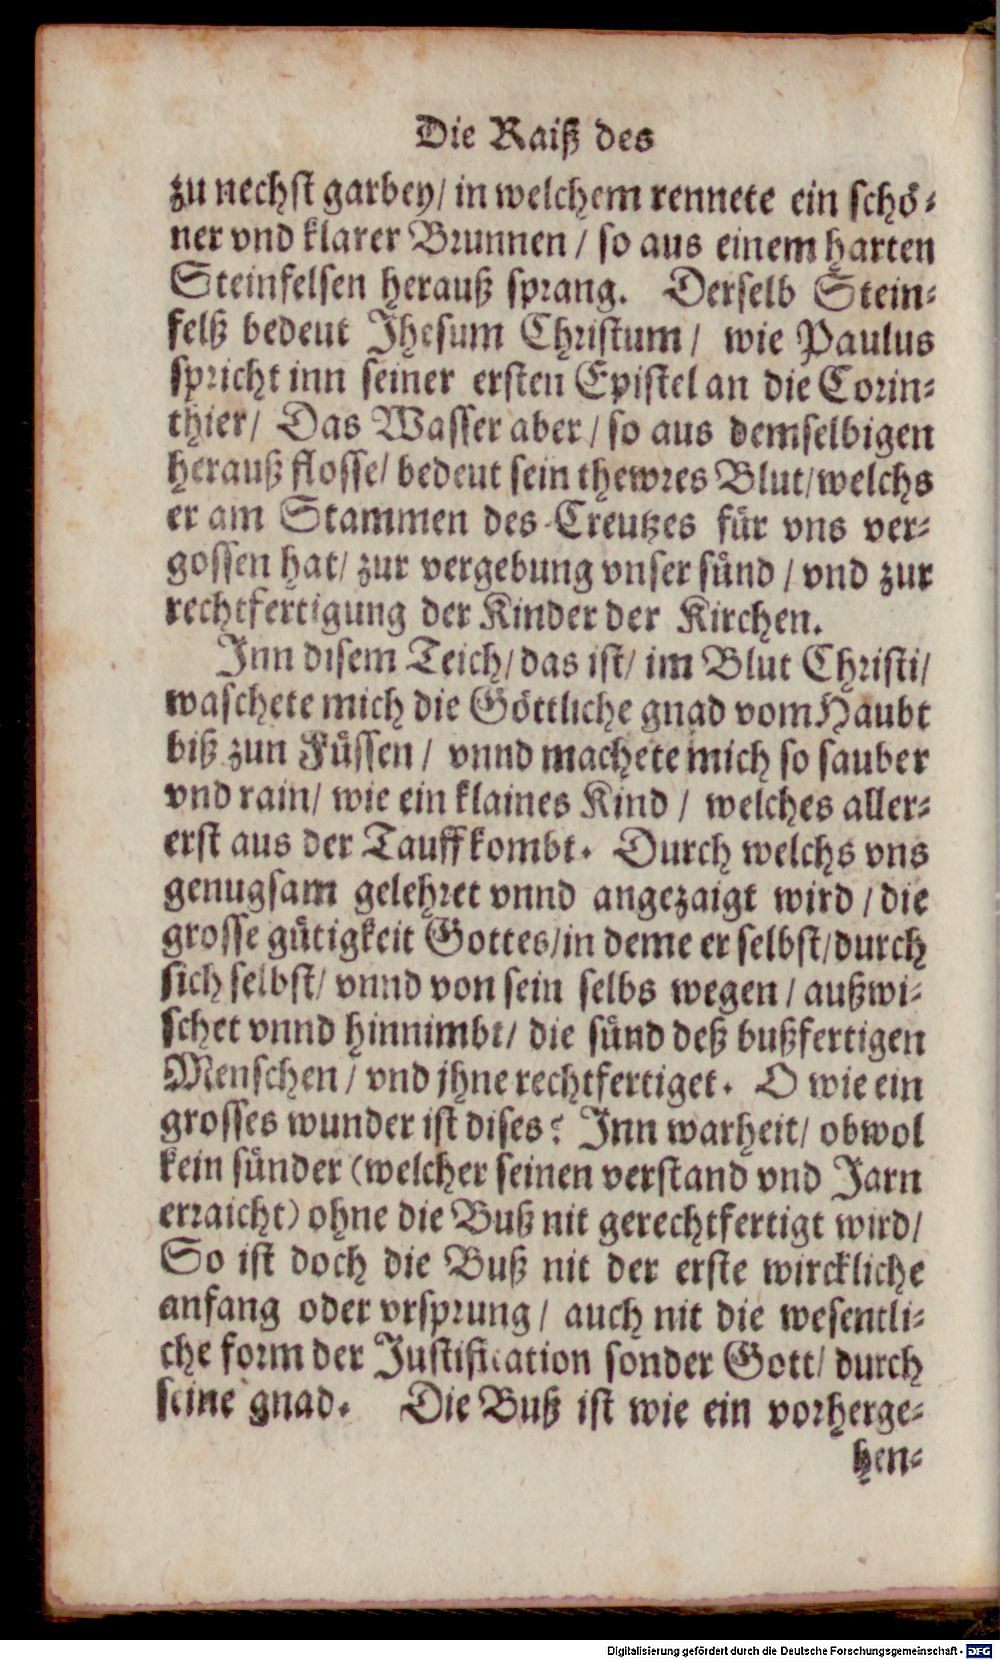 Die Raiß des
zu nechst garbey/ in welchem rennete ein schö-
ner vnd klarer Brunnen / so aus einem harten
Steinfelsen herauß sprang. Derselb Stein-
felß bedeut Jhesum Christum / wie Paulus
spricht inn seiner ersten Epistel an die Corin-
thier / Das Wasser aber / so aus demselbigen
herauß flosse/ bedeut sein thewres Blut/ welchs
er am Stammen des Creutzes für vns ver-
gossen hat/ zur vergebung vnser sünd / vnd zur
rechtfertigung der Kinder der Kirchen.
Inn disem Teich/ das ist/ im Blut Christi/
waschete mich die Göttliche gnad vom Haubt
biß zun Füssen / vnnd machete mich so sauber
vnd rain/ wie ein klaines Kind / welches aller-
erst aus der Tauff kombt. Durch welchs vns
genugsam gelehret vnnd angezaigt wird / die
grosse gütigkeit Gottes/ in deme er selbst/ durch
sich selbst/ vnnd von sein selbs wegen / außwi-
schet vnnd hinnimbt/ die sünd deß bußfertigen
Menschen / vnd jhne rechtfertiget. O wie ein
grosses wunder ist dises? Inn warheit/ obwol
kein sünder (welcher seinen verstand vnd Jarn
erraicht) ohne die Buß nit gerechtfertigt wird/
So ist doch die Buß nit der erste wirckliche
anfang oder vrsprung / auch nit die wesentli-
che form der Justification sonder Gott/ durch
seine gnad. Die Buß ist wie ein vorherge-
hen-
Digitalisierung gefördert durch die Deutsche Forschungsgemeinschaft - DFG